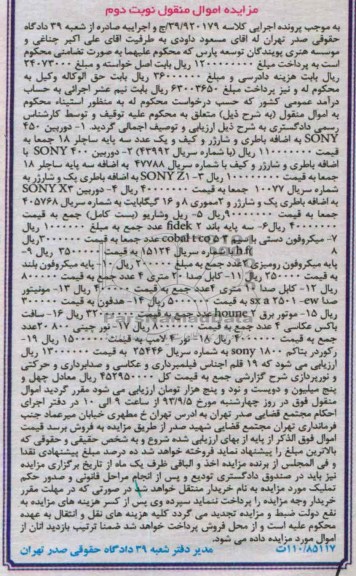 مزایده اموال منقول نوبت دوم
به موجب پرونده اجرایی کلاسه ۳۹/۹۲۰۱۷۹ج و اجراییه صادره از شعبه ۳۹ دادگاه
حقوقی صدر تهران له آقای مسعود داودی به طرفیت آقای علی اکبر جناغی و
موسسه هنری پویندگان توسعه پارس که محکوم علیهما به صورت تضامنی محکوم
است به پرداخت مبلغ ۱۲۰۰۰۰۰۰۰۰ ریال بابت اصل خواسته و مبلغ ۲۴۰۷۳۰۰۰
ریال بابت هزینه دادرسی و مبلغ ۳۶۰۰۰۰۰۰ ریال بابت حق الوکاله وکیل به
محکوم له و نیز پرداخت مبلغ ۶۳۰۰۳۶۵۰ ریال بابت نیم عشر اجرائی به حساب
درآمد عمومی کشور که حسب درخواست محکوم له به منظور استیفاء محکوم
به اموال منقول (به شرح ذیل) متعلق به محکوم علیه توقیف و توسط کارشناس
رسمی دادگستری به شرح ذیل ارزیابی و توصیف اجمالی گردید. ۱- دوربین ۴۵۰
SONY به اضافه باطری و شارژر و کیف و یک عدد سه پایه ساچلر ۱۸ جمعا به
قیمت ۱۱۰۰۰۰۰۰۰ ریال (با شماره سریال ۴۳۹۹۲) ۲- دوربین ۴۰۰ SONY با
اضافه باطری و شارژر و کیف با شماره سریال ۴۷۷۸۸ به اضافه سه پایه ساچلر ۱۸
جمعا به قیمت ۱۰۰۰۰۰۰۰۰ ریال ۳- SONY Z1 به اضافه باطری یک و شارژر به
شماره سریال ۱۰۰۷۷ جمعا به قیمت ۴۰۰۰۰۰۰۰ ریال ۴- دوربین SONY X۲
به اضافه باطری یک و شارژر و ۲مموری ۸ و ۱۶ گیگابایت به شماره سریال ۴۰۵۷۶۸
جمعا به قیمت ۹۰۰۰۰۰۰۰ریال ۵- ریل وشاریو (بست کامل) جمع به قیمت
۴۰۰۰۰۰۰ ریال۶- سه پایه باند fidek ۲ عدد جمع به مبلغ ۱۰۰۰۰۰۰ ریال
۷- میکروفون دستی باسیم cobalt co۵ ۲ عدد جمعا به قیمت ۳۰۰۰۰۰۰ریال
با شماره سریال ۱۵۱۲۴ به قیمت ۳۵۰۰۰۰۰ ریال ۹-
پایه میکروفون رومیزی ۲ عدد جمع به مبلغ ۲۰۰۰۰۰ ریال ۱۰- پایه میکروفون بلند
به قیمت ۲۵۰۰۰۰ ریال ۱۱- کابل صدا ۲۰ متری ۴ عدد جمع به قیمت ۸۰۰۰۰۰
ریال ۱۲- کابل صدا ۱۰ متری ۴عدد جمع به قیمت ۴۰۰۰۰۰ ریال ۱۳- مونیتور
صدا sx a ۲۵۰۱ -cw به قیمت ۵۰۰۰۰۰ ریال ۱۴- هدفون به قیمت ۳۰۰۰۰۰
ریال ۱۵- موتور برق houme ۲ عدد جمع به قیمت ۳۲۰۰۰۰۰۰ ریال ۱۶- سافت
باکس عکاسی ۴ عدد جمع به قیمت ۸۰۰۰۰۰۰ ریال ۱۷- نور چینی ۸۰۰ ۲۰عدد
جمع به قیمت ۴۰۰۰۰۰۰ ریال ۱۸- نور ۴ لامپ به قیمت ۱۵۰۰۰۰۰ ریال ۱۹-
رکوردر بتاکم ۱۸۰۰ sony به شماره سریال ۲۵۴۴۶ به قیمت ۱۳۰۰۰۰۰۰ ریال
ارزیابی می شود که ۱۹ قلم اجناس فیلمبرداری و عکاسی و صدابرداری و حرکتی
و نورپردازی شرح گزارشی جمع به قیمت کل ۴۵۲۹۵۰۰۰۰ ریال معادل چهل و
پنج میلیون و دویست و نود و پنج هزار تومان ارزیابی می شود مقرر گردید اموال
منقول فوق در روز چهارشنبه مورخ ۹۳/۹/۵ از ساعت ۹ الی ۱۰ در دفتر اجرای
احکام مجتمع قضایی صدر تهران به آدرس تهران خ مطهری خیابان میرعماد جنب
فرمانداری تهران مجتمع قضایی شهید صدر از طریق مزایده به فروش برسد قیمت
اموال فوق الذکر از پایه از بهای ارزیابی شده شروع و به شخص حقیقی و حقوقی که
بالاترین مبلغ را پیشنهاد نماید فروخته خواهد شد ده درصد مبلغ پیشنهادی نقدا
و فی المجلس از برنده مزایده اخذ و الباقی ظرف یک ماه از تاریخ برگزاری مزایده
نیز باید در صندوق دادگستری تودیع و پس از انجام مراحل قانونی و صدور حکم
تملیک مورد مزایده به نام خریدار منتقل خواهد شد در صورتی که در مهلت مقرر
خریدار وجه مزایده را پرداخت ننماید سپرده وی پس از کسر هزینه های مزایده به
نفع دولت ضبط و مزایده تجدید می گردد کلیه هزینه های نقل و انتقال به عهده
محکوم علیه است و از محل فروش پرداخت خواهد شد ضمنا ترتیب بازدید آنان از
اموال مورد مزایده داده می شود.
۱۱۰/۸۵۱۱۷ت مدیر دفتر شعبه ۳۹ دادگاه حقوقی صدر تهران